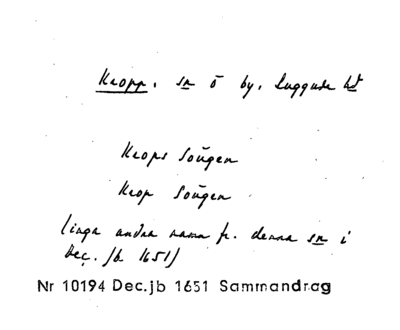 Kropp. sn o by. Luggude hd
Krops Sougen
Krop Sougen
(inga andra namn fr. denna sn i
Dec. jb. 1651)
Nr 10194 Dec.jb 1651 Sammandrag